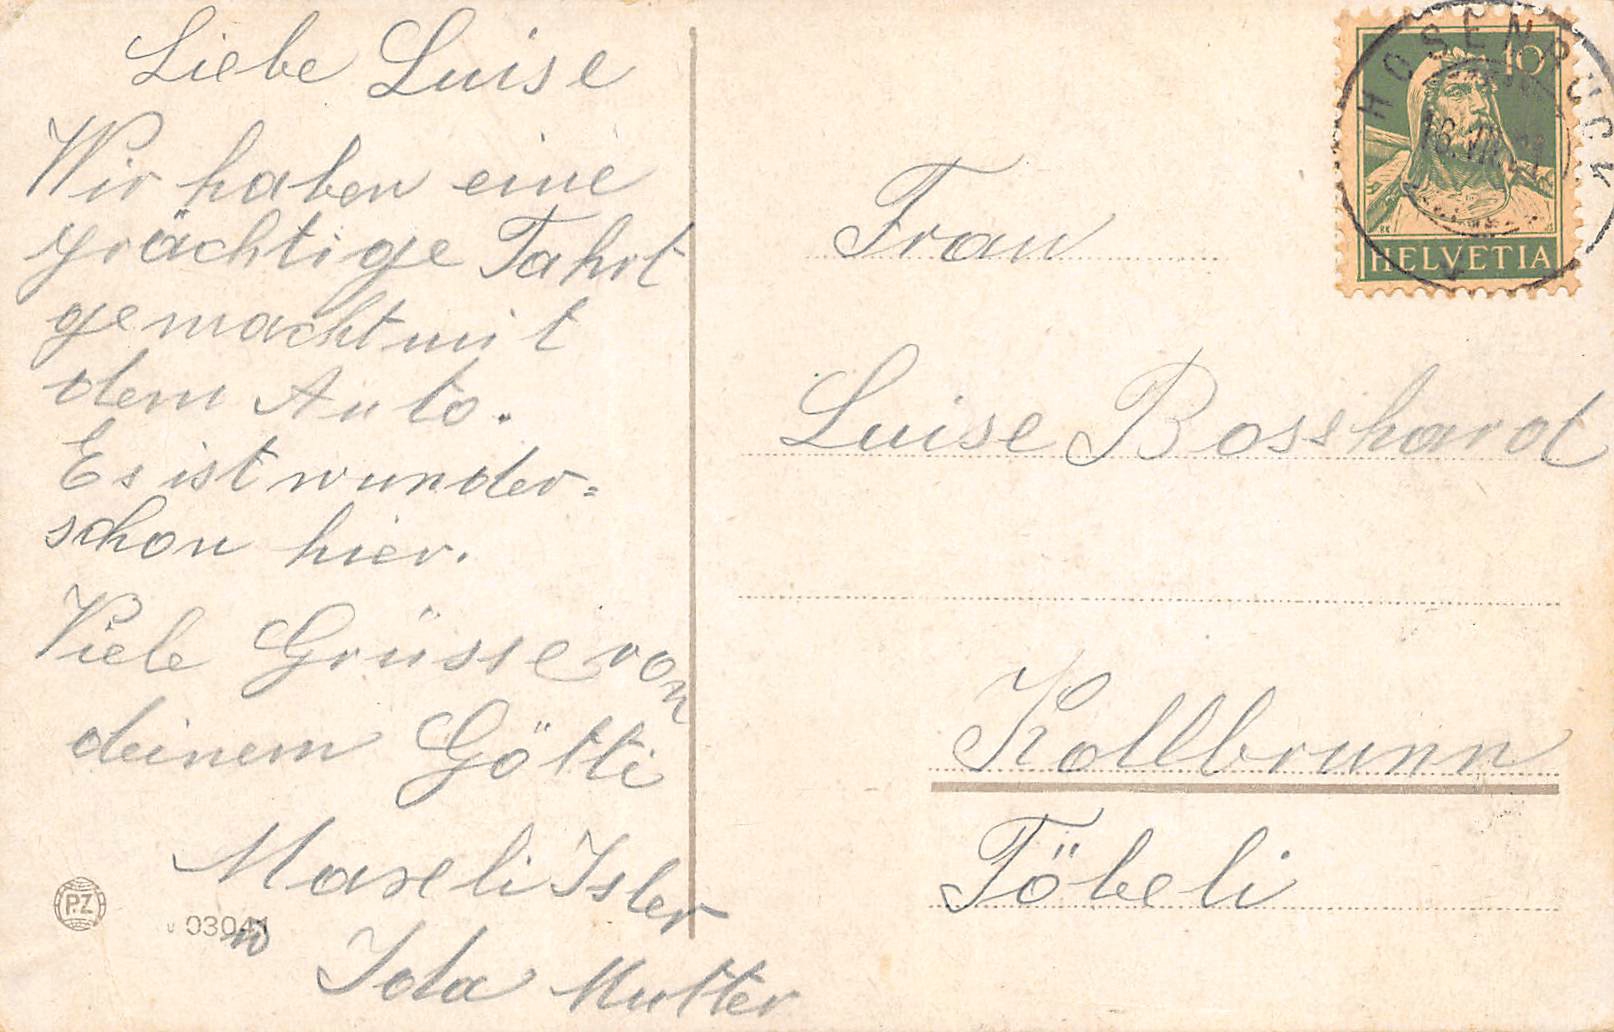 Liebe Luise
Wir haben eine
prächtige Fahrt
gemacht mit
dem Auto.
Es ist wunder=
schon hier.
Viele Grüsse von
deinem Götti
Isler
Ida Mutter
PZ
03041
HOSENRUCK
10
HELVETIA
Frau
Luise Bosshard
Kollbrunn
Töbeli